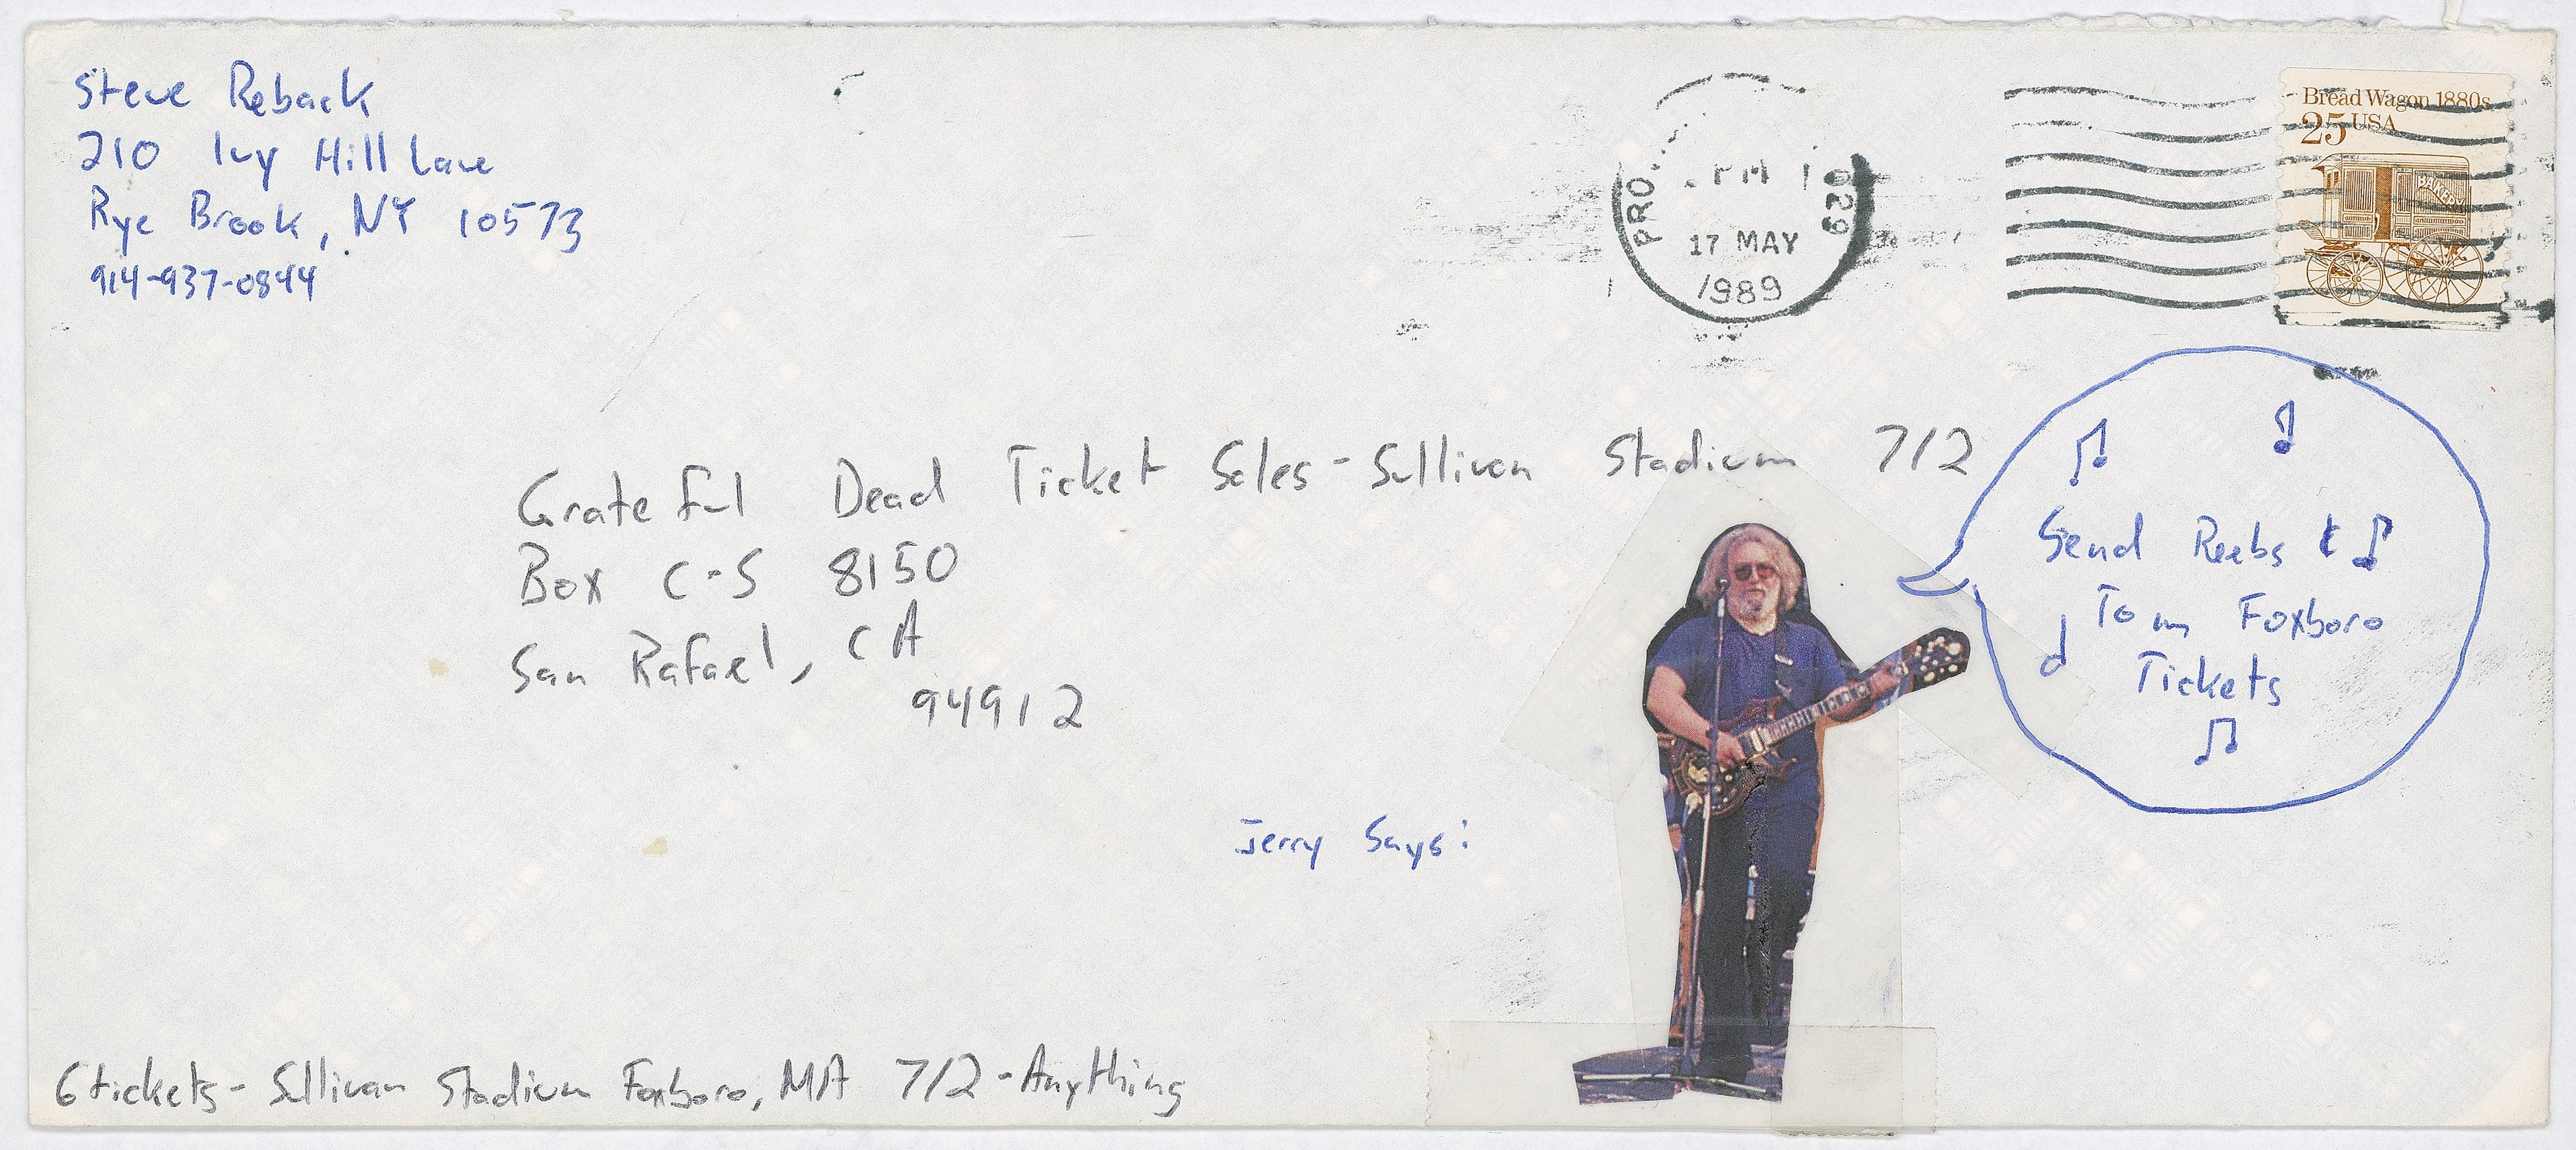 Steve Reback
210 Ivy Hill Lane
Rye Brook, NY 10573
914-937-0844
PRO
PM
029
17 MAY
1989
Bread Wagon 1880s
25 USA
BAKERY
Grateful Dead Ticket Sales - Sullivan Stadium 7/2
Box C-S 8150
San Rafael, CA
94912
Send Reebs &
Tom Foxboro
Tickets
Jerry Says:
6 tickets - Sullivan Stadium Foxboro, MA 7/2 - Anything